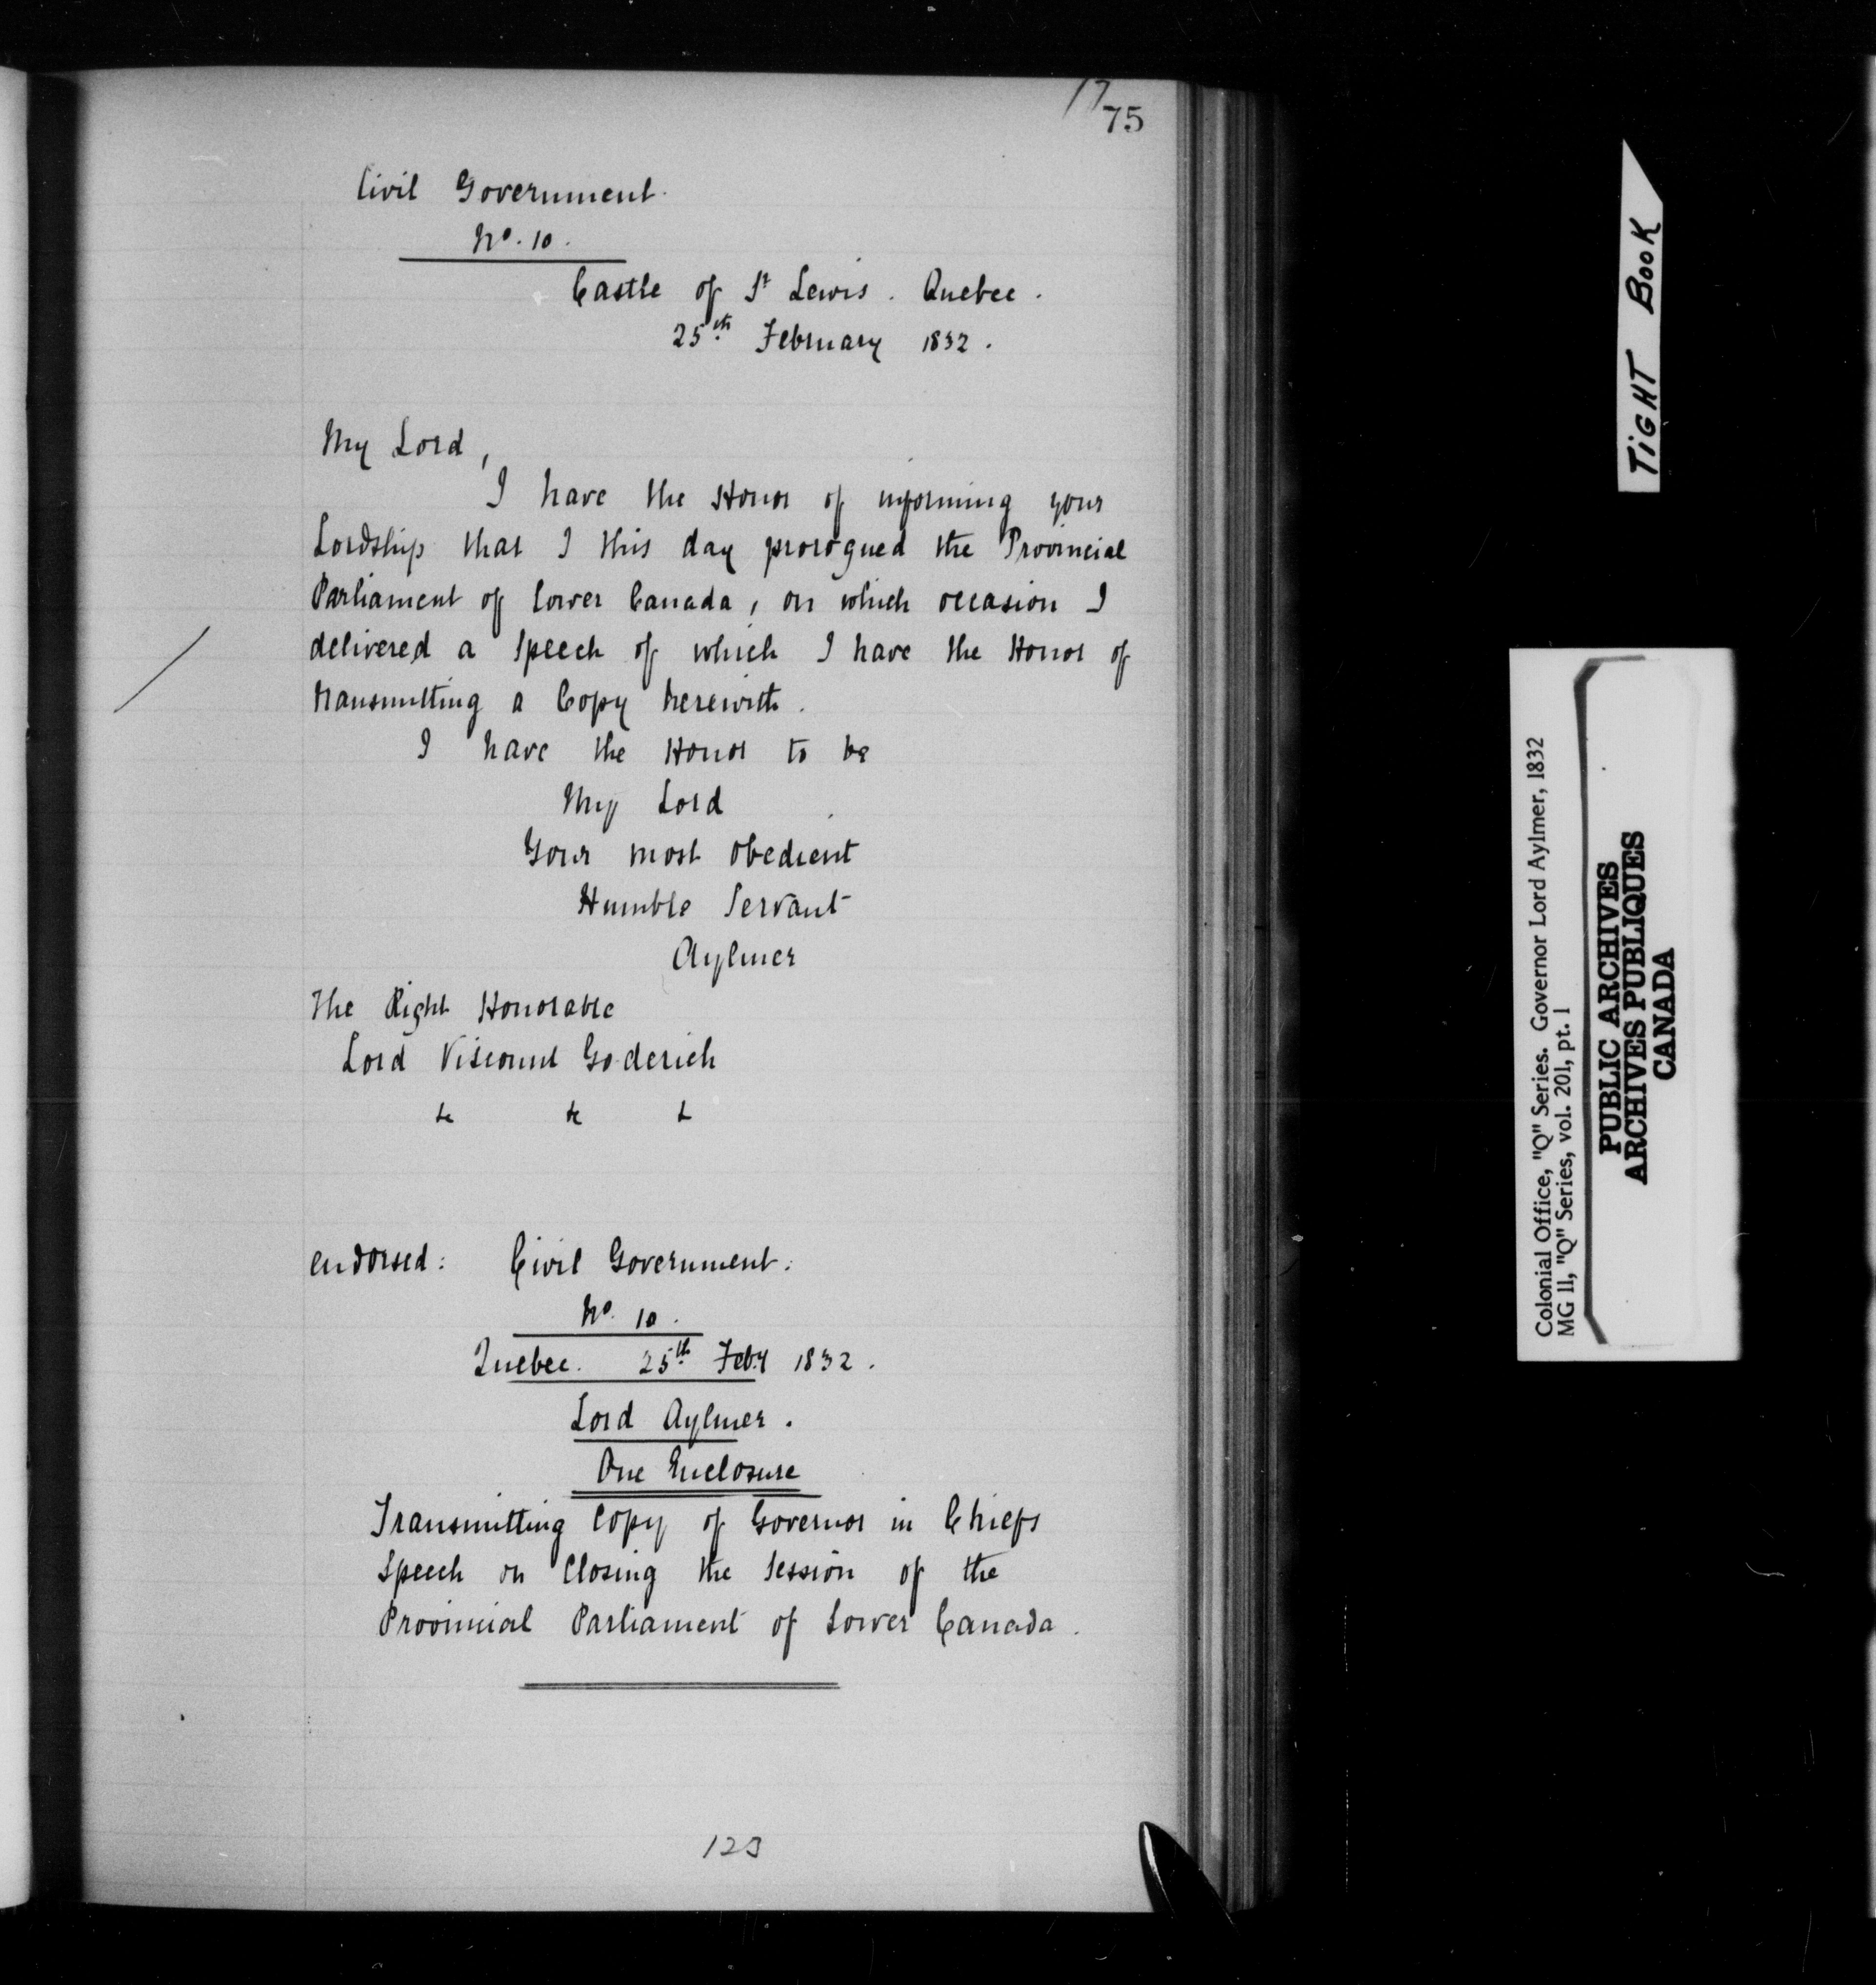 17
75
Civil Government.
No. 10.
Castle of St Lewis. Quebec.
25th February 1832.
My Lord,
I have the Honor of informing your
Lordship that I this day prorogued the Provincial
Parliament of Lower Canada, on which occasion I
delivered a Speech of which I have the Honor of
transmitting a Copy herewith.
I have the Honor to be
My Lord
Your most obedient
Humble Servant
Aylmer
The Right Honorable
Lord Viscount Goderich
&c &c &
endorsed: Civil Government.
No. 10.
Quebec. 25th Feby 1832.
Lord Aylmer.
One Enclosure
Transmitting Copy of Governor in Chiefs
Speech on Closing the Session of the
Provincial Parliament of Lower Canada.
123
TIGHT BOOK
Colonial Office, "Q" Series. Governor Lord Aylmer, 1832
MG 11, "Q" Series, vol. 201, pt. 1
PUBLIC ARCHIVES
ARCHIVES PUBLIQUES
CANADA